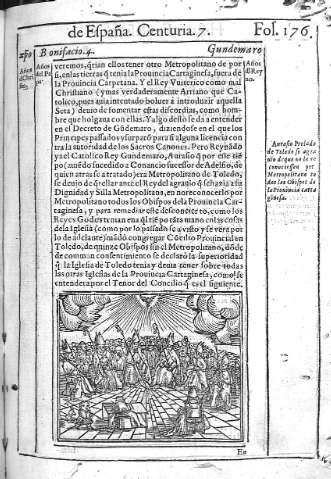 de España. Centuria. 7. Fol. 176.
Bonifacio. 4. Gundemaro
Años del Rey
veremos, q̃rian ellos tener otro Metropolitano de por
si, en las tierras q̃ tenia la Prouincia Cartaginesa, fuera de
la Prouincia Carpetana. Y el Rey Vviterico como mal
Christiano (y mas verdaderamente Arriano que Ca-
tolico, pues auia intentado boluer à introduzir aquella
Seta) deuio de fomentar estas discordias, como hom-
bre que holgaua con ellas. Y algo desto se dà a entender
en el Decreto de Gũdemaro, diziendose en el que los
Principes passados y su parte para alguna licencia con-
tra la autoridad de los Sacros Canones. Pero Reynãdo
ya el Catolico Rey Gundemaro, Aurasio q̃ por este tiẽ
po auiendo sucedido a Conancio sucessor de Adelfio, de
quien atras se a tratado) era Metropolitano de Toledo,
se deuio de querellar ante el Rey del agrauio q̃ se hazia a su
Dignidad y Silla Metropolitana, en no reconocerlo por
Metropolitano todos los Obispos de la Prouincia Car-
taginesa, y para remediar este desconcierto, como los
Reyes Godos tenian en q̃llo tiẽpo tãta mano en las cosas
de la Iglesia (como por lo passado se a visto y se vera por
lo de adelante) mãdò congregar Cõcilio Prouincial en
Toledo, de quinze Obispos sin el Metropolitano, dõde
de comun consentimiento se declarò la superioridad
q̃ la Iglesia de Toledo tenia y deuia tener sobre todas
las otras Iglesias de la Prouincia Cartaginesa, como se
entendera por el Tenor del Concilio q̃ es el siguiente.
Aurasio Prelado
de Toledo se agra
uio de que no le re
conociessen por
Metropolitano to
dos los Obispos de
la Prouincia Carta
ginesa.
En